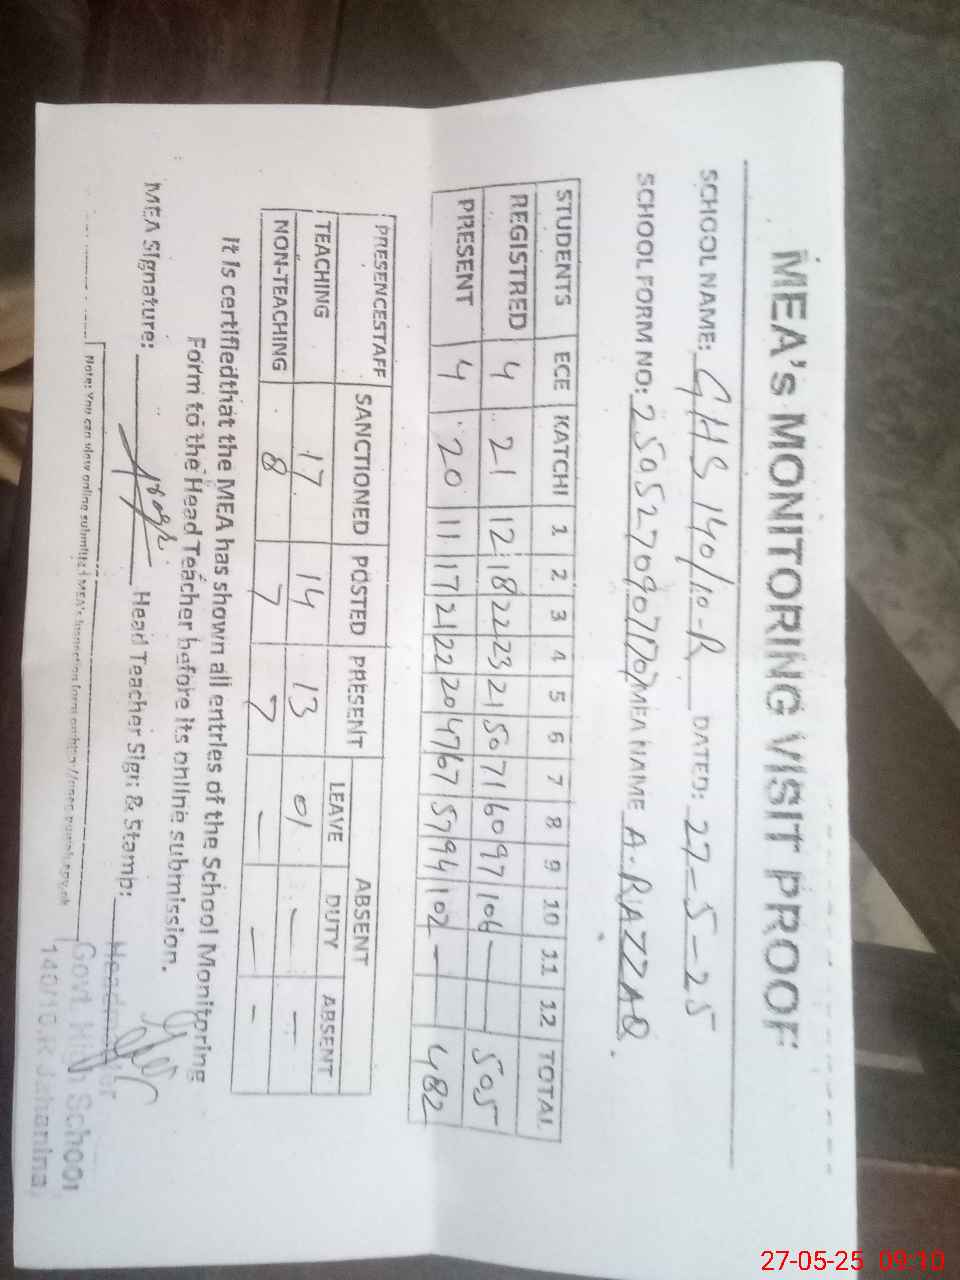 MEA's MONITORING VISIT PROOF
SCHOOL NAME: GHS 140/10-R DATED: 27-5-25
SCHOOL FORM NO: MEA NAME A. RAZZAQ.
STUDENTS ECE KATCHI 1 2 3 4 5 6 7 8 9 10 11 12 TOTAL
REGISTRED 4 21 12 18 22 23 21 50 71 60 97 106 — 505
PRESENT 4 20 11 17 21 22 20 47 67 57 94 102 — 482
PRESENCESTAFF SANCTIONED POSTED PRESENT ABSENT
LEAVE DUTY ABSENT
TEACHING 17 14 13 01 — —
NON-TEACHING 8 7 7 — — —
It is certifiedthat the MEA has shown all entries of the School Monitoring
Form to the Head Teacher before its online submission.
MEA Signature: Head Teacher Sign & Stamp:
Headmaster
Govt. High School
140/10.R Jahania
Note: You can view online submitted MEA's inspection form on
27-05-25 09:10